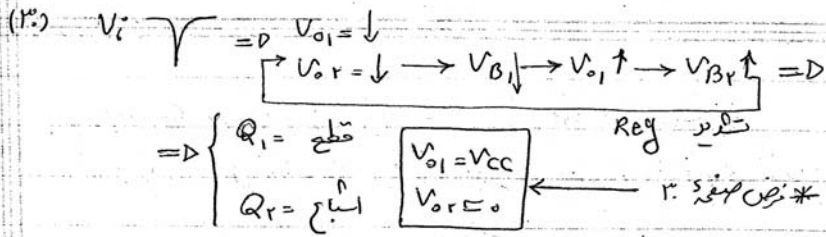 (۳۰) Vi =D Vo1 = ↓
Vo۲ = ↓ → VB1↓ → Vo1 ↑ → VB۲ ↑ =D
تشدید Reg
=D { Q1 = قطع
Q۲ = اشباع
Vo1 = VCC
Vo۲ ≃ 0
* فرض صفحهٔ ۳۰